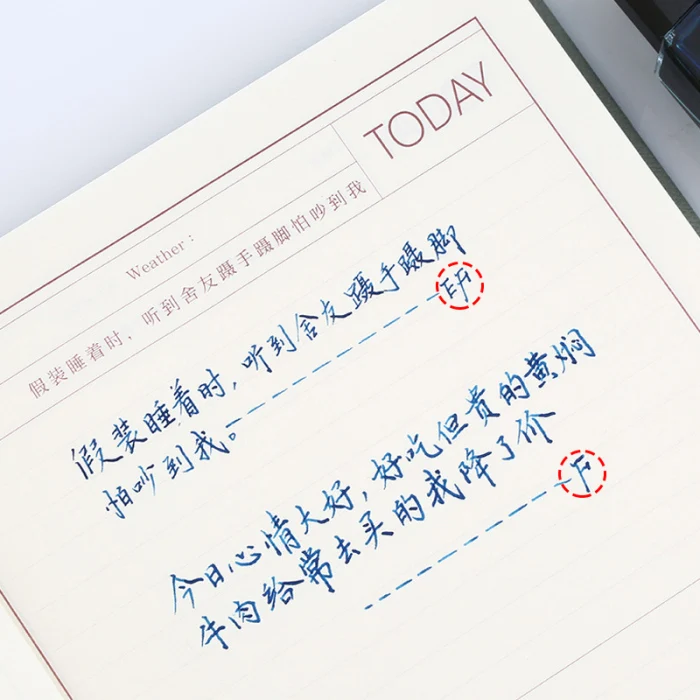 TODAY
Weather:
假装睡着时，听到舍友蹑手蹑脚怕吵到我
假装睡着时，听到舍友蹑手蹑脚
怕吵到我。
EF
今日心情大好，好吃但贵的黄焖
牛肉给常去买的我降了价
F